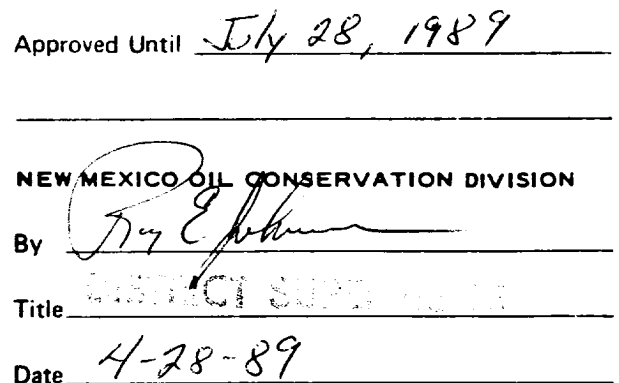 Approved Until July 28, 1989
NEW MEXICO OIL CONSERVATION DIVISION
By Roy E. Johnson
Title DISTRICT SUPERVISOR
Date 4-28-89